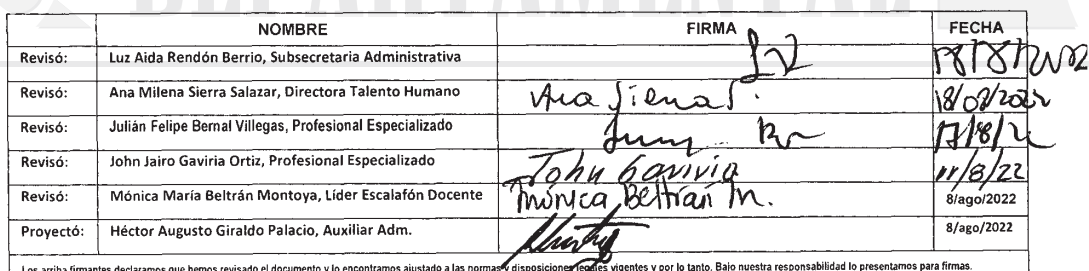 NOMBRE FIRMA FECHA
Revisó: Luz Aida Rendón Berrio, Subsecretaria Administrativa
Revisó: Ana Milena Sierra Salazar, Directora Talento Humano Ana Sierra S. 18/08/2022
Revisó: Julián Felipe Bernal Villegas, Profesional Especializado
Revisó: John Jairo Gaviria Ortiz, Profesional Especializado John Gaviria 11/8/22
Revisó: Mónica María Beltrán Montoya, Líder Escalafón Docente Mónica Beltrán M. 8/ago/2022
Proyectó: Héctor Augusto Giraldo Palacio, Auxiliar Adm. 8/ago/2022
Los arriba firmantes declaramos que hemos revisado el documento y lo encontramos ajustado a las normas y disposiciones legales vigentes y por lo tanto. Bajo nuestra responsabilidad lo presentamos para firmas.